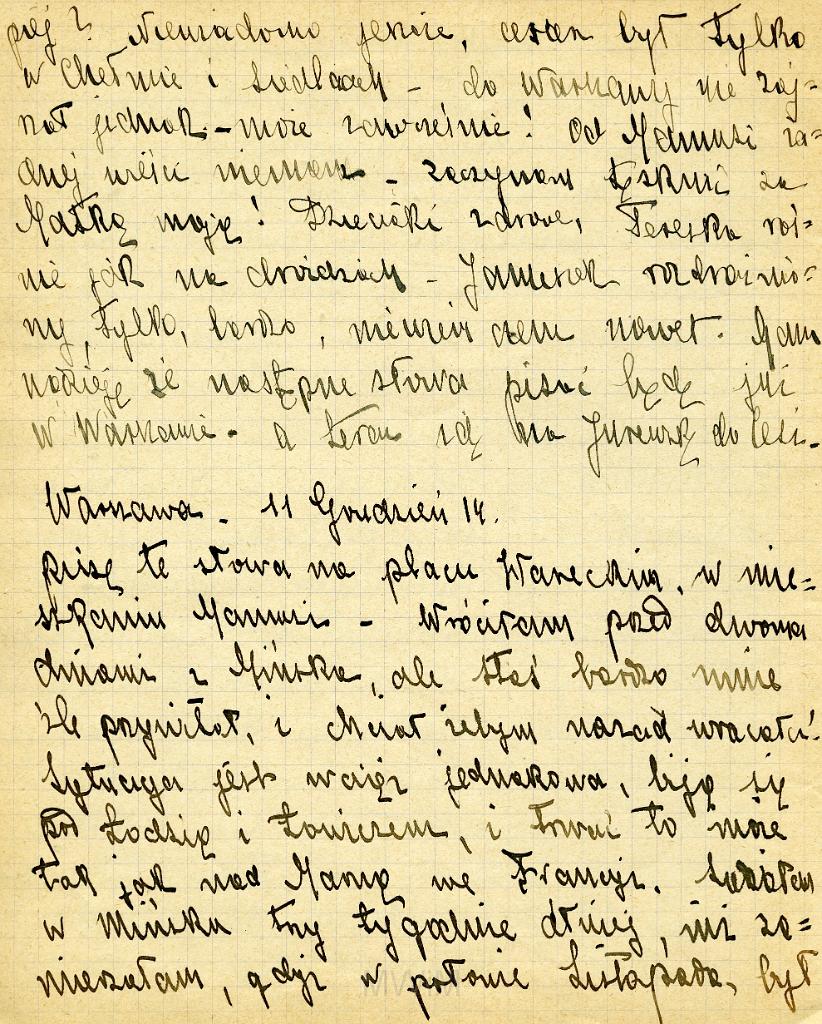 piej? Niewiadomo jeszcze, cesarz był tylko
w Chełmie i Siedlcach - do Warszawy nie zaj-
rzał jednak - może zawcześnie! Od Mamusi ża-
dnej wieści niemam - zaczynam tęsknić za
Matką moją! Dzieciaki zdrowe, Tereska roś-
nie jak na drożdżach - Janeczek rozdrażnio-
ny, tylko, bardzo, niewiem czem nawet. Mam
nadzieję że następne słowa pisać będę już
w Warszawie - a teraz idę na
Warszawa - 11 Grudzień 14.
piszę te słowa na placu Wareckim, w mie-
szkaniu Mamusi - Wróciłam przed dwoma
dniami z Mińska, ale Staś bardzo mnie
źle przywitał, i chciał żebym nazad wracała!
Sytuacya jest wciąż jednakowa, biją się
pod Łodzią i Łowiczem, i trwać to może
tak jak nad Marną we Francyi. Siedziałam
w Mińsku trzy tygodnie dłużej, niż za-
mierzałam, gdyż w połowie Listopada, był